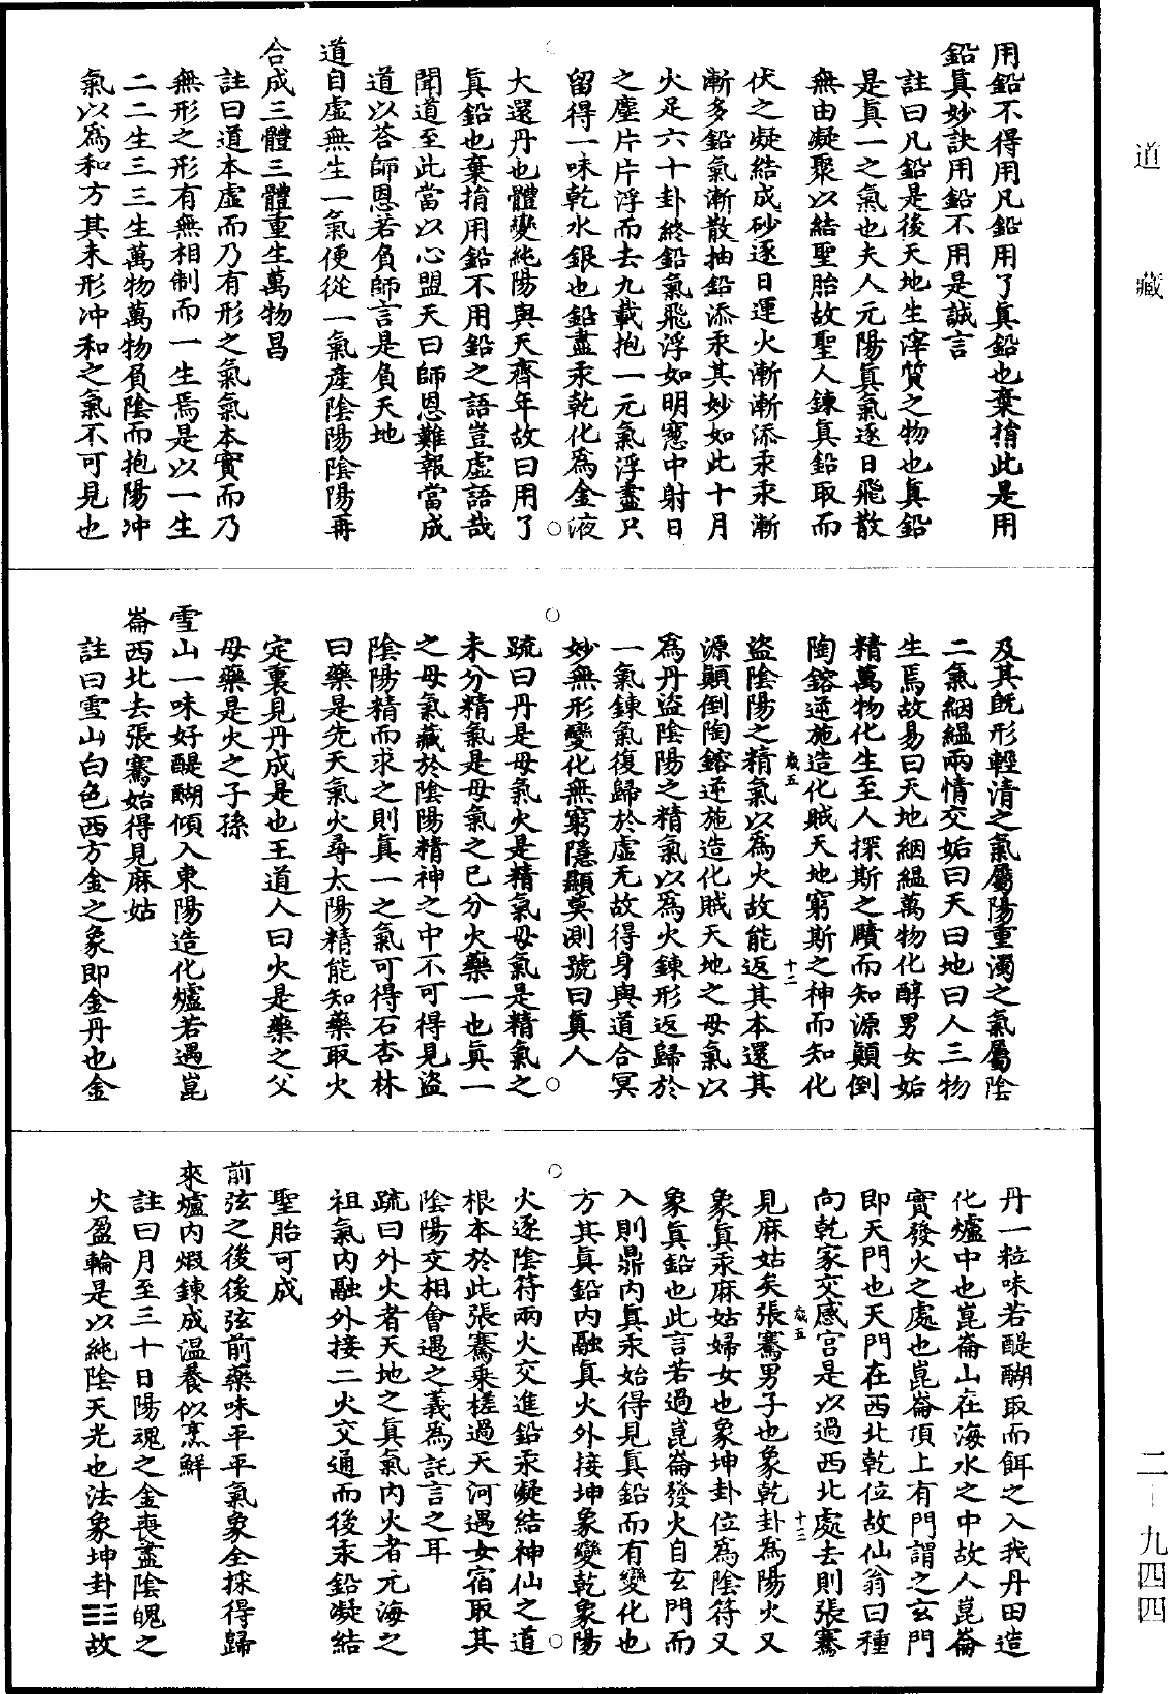 道藏
用鉛不得用凡鉛用了真鉛也棄捐此是用
鉛真妙訣用鉛不用是誠言
註曰凡鉛是後天地生滓質之物也真鉛
是真一之氣也夫人元陽真氣逐日飛散
無由凝聚以結聖胎故聖人鍊真鉛取而
伏之凝結成砂逐日運火漸漸添汞汞漸
漸多鉛氣漸散抽鉛添汞其妙如此十月
火足六十卦終鉛氣飛浮如明窻中射日
之塵片片浮而去九載抱一元氣浮盡只
留得一味乾水銀也鉛盡汞乾化爲金液
大還丹也體變純陽與天齊年故曰用了
真鉛也棄捐用鉛不用鉛之語豈虛語哉
聞道至此當以心盟天曰師恩難報當成
道以荅師恩若負師言是負天地
道自虛無生一氣便從一氣產陰陽陰陽再
合成三體三體重生萬物昌
註曰道本虛而乃有形之氣氣本實而乃
無形之形有無相制而一生焉是以一生
二二生三三生萬物萬物負陰而抱陽冲
氣以爲和方其未形冲和之氣不可見也
及其旣形輕清之氣屬陽重濁之氣屬陰
二氣絪縕兩情交姤曰天曰地曰人三物
生焉故易曰天地絪縕萬物化醇男女姤
精萬物化生至人探斯之賾而知源顛倒
陶鎔逆施造化賊天地窮斯之神而知化
歲五
十二
盜陰陽之精氣以爲火故能返其本還其
源顛倒陶鎔逆施造化賊天地之母氣以
爲丹盜陰陽之精氣以爲火鍊形返歸於
一氣鍊氣復歸於虛无故得身與道合冥
妙無形變化無窮隱顯莫測號曰真人
疏曰丹是母氣火是精氣母氣是精氣之
未分精氣是母氣之已分火藥一也真一
之母氣藏於陰陽精神之中不可得見盜
陰陽精而求之則真一之氣可得石杏林
曰藥是先天氣火尋太陽精能知藥取火
定裏見丹成是也王道人曰火是藥之父
母藥是火之子孫
雪山一味好醍醐傾入東陽造化爐若遇崑
崙西北去張騫始得見麻姑
註曰雪山白色西方金之象即金丹也金
丹一粒味若醍醐取而餌之入我丹田造
化爐中也崑崙山在海水之中故人崑崙
實發火之處也崑崙頂上有門謂之玄門
即天門也天門在西北乾位故仙翁曰種
向乾家交感宫是以過西北處去則張騫
歲五
十三
見麻姑矣張騫男子也象乾卦爲陽火又
象真汞麻姑婦女也象坤卦位爲陰符又
象真鉛也此言若過崑崙發火自玄門而
入則鼎內真汞始得見真鉛而有變化也
方其真鉛内融真火外接坤象變乾象陽
火逐陰符兩火交進鉛汞凝結神仙之道
根本於此張騫乘槎過天河遇女宿取其
陰陽交相會遇之義爲託言之耳
疏曰外火者天地之真氣内火者元海之
祖氣内融外接二火交通而後汞鉛凝結
聖胎可成
前弦之後後弦前藥味平平氣象全採得歸
來爐内煆鍊成温養似烹鮮
註曰月至三十日陽魂之金喪盡陰魄之
火盈輪是以純陰天光也法象坤卦☷故
二—九四四